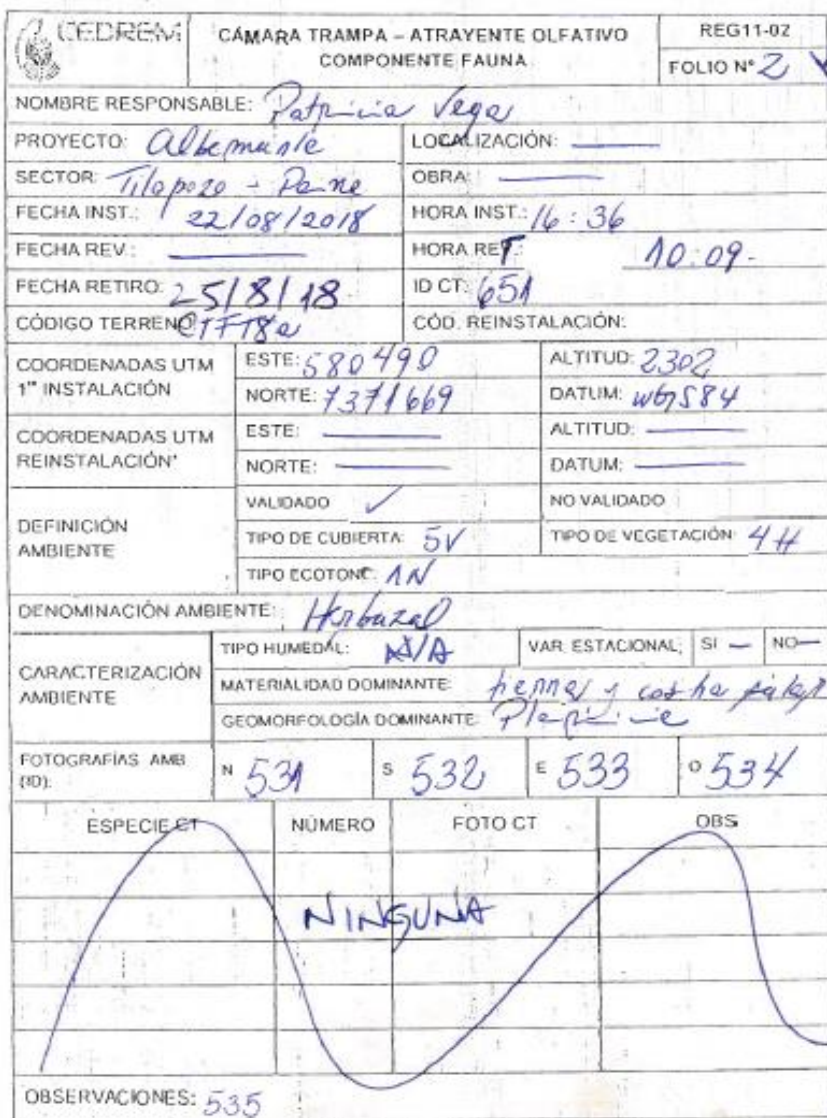 CEDREM
CÁMARA TRAMPA – ATRAYENTE OLFATIVO
COMPONENTE FAUNA
REG11-02
FOLIO N° 2
NOMBRE RESPONSABLE: Patricia Vega
PROYECTO: Albemarle LOCALIZACIÓN:
SECTOR: Tilopozo - Peine OBRA:
FECHA INST.: 22/08/2018 HORA INST.: 16:36
FECHA REV.: HORA RET: 10:09.-
FECHA RETIRO: 25/8/18 ID CT: 651
CÓDIGO TERRENO: CTFT8a CÓD. REINSTALACIÓN:
COORDENADAS UTM 1" INSTALACIÓN ESTE: 580490 ALTITUD: 2302
NORTE: 7371669 DATUM: WGS84
COORDENADAS UTM REINSTALACIÓN' ESTE: ALTITUD:
NORTE: DATUM:
DEFINICIÓN AMBIENTE VALIDADO ✓ NO VALIDADO
TIPO DE CUBIERTA: 5V TIPO DE VEGETACIÓN: 4H
TIPO ECOTONO: 1N
DENOMINACIÓN AMBIENTE: Herbazal
CARACTERIZACIÓN AMBIENTE TIPO HUMEDAL: N/A VAR. ESTACIONAL; SI — NO —
MATERIALIDAD DOMINANTE: y costra
GEOMORFOLOGÍA DOMINANTE: Planicie
FOTOGRAFÍAS AMB (ID): N 531 S 532 E 533 O 534
ESPECIE CT NÚMERO FOTO CT OBS
NINGUNA
OBSERVACIONES: 535